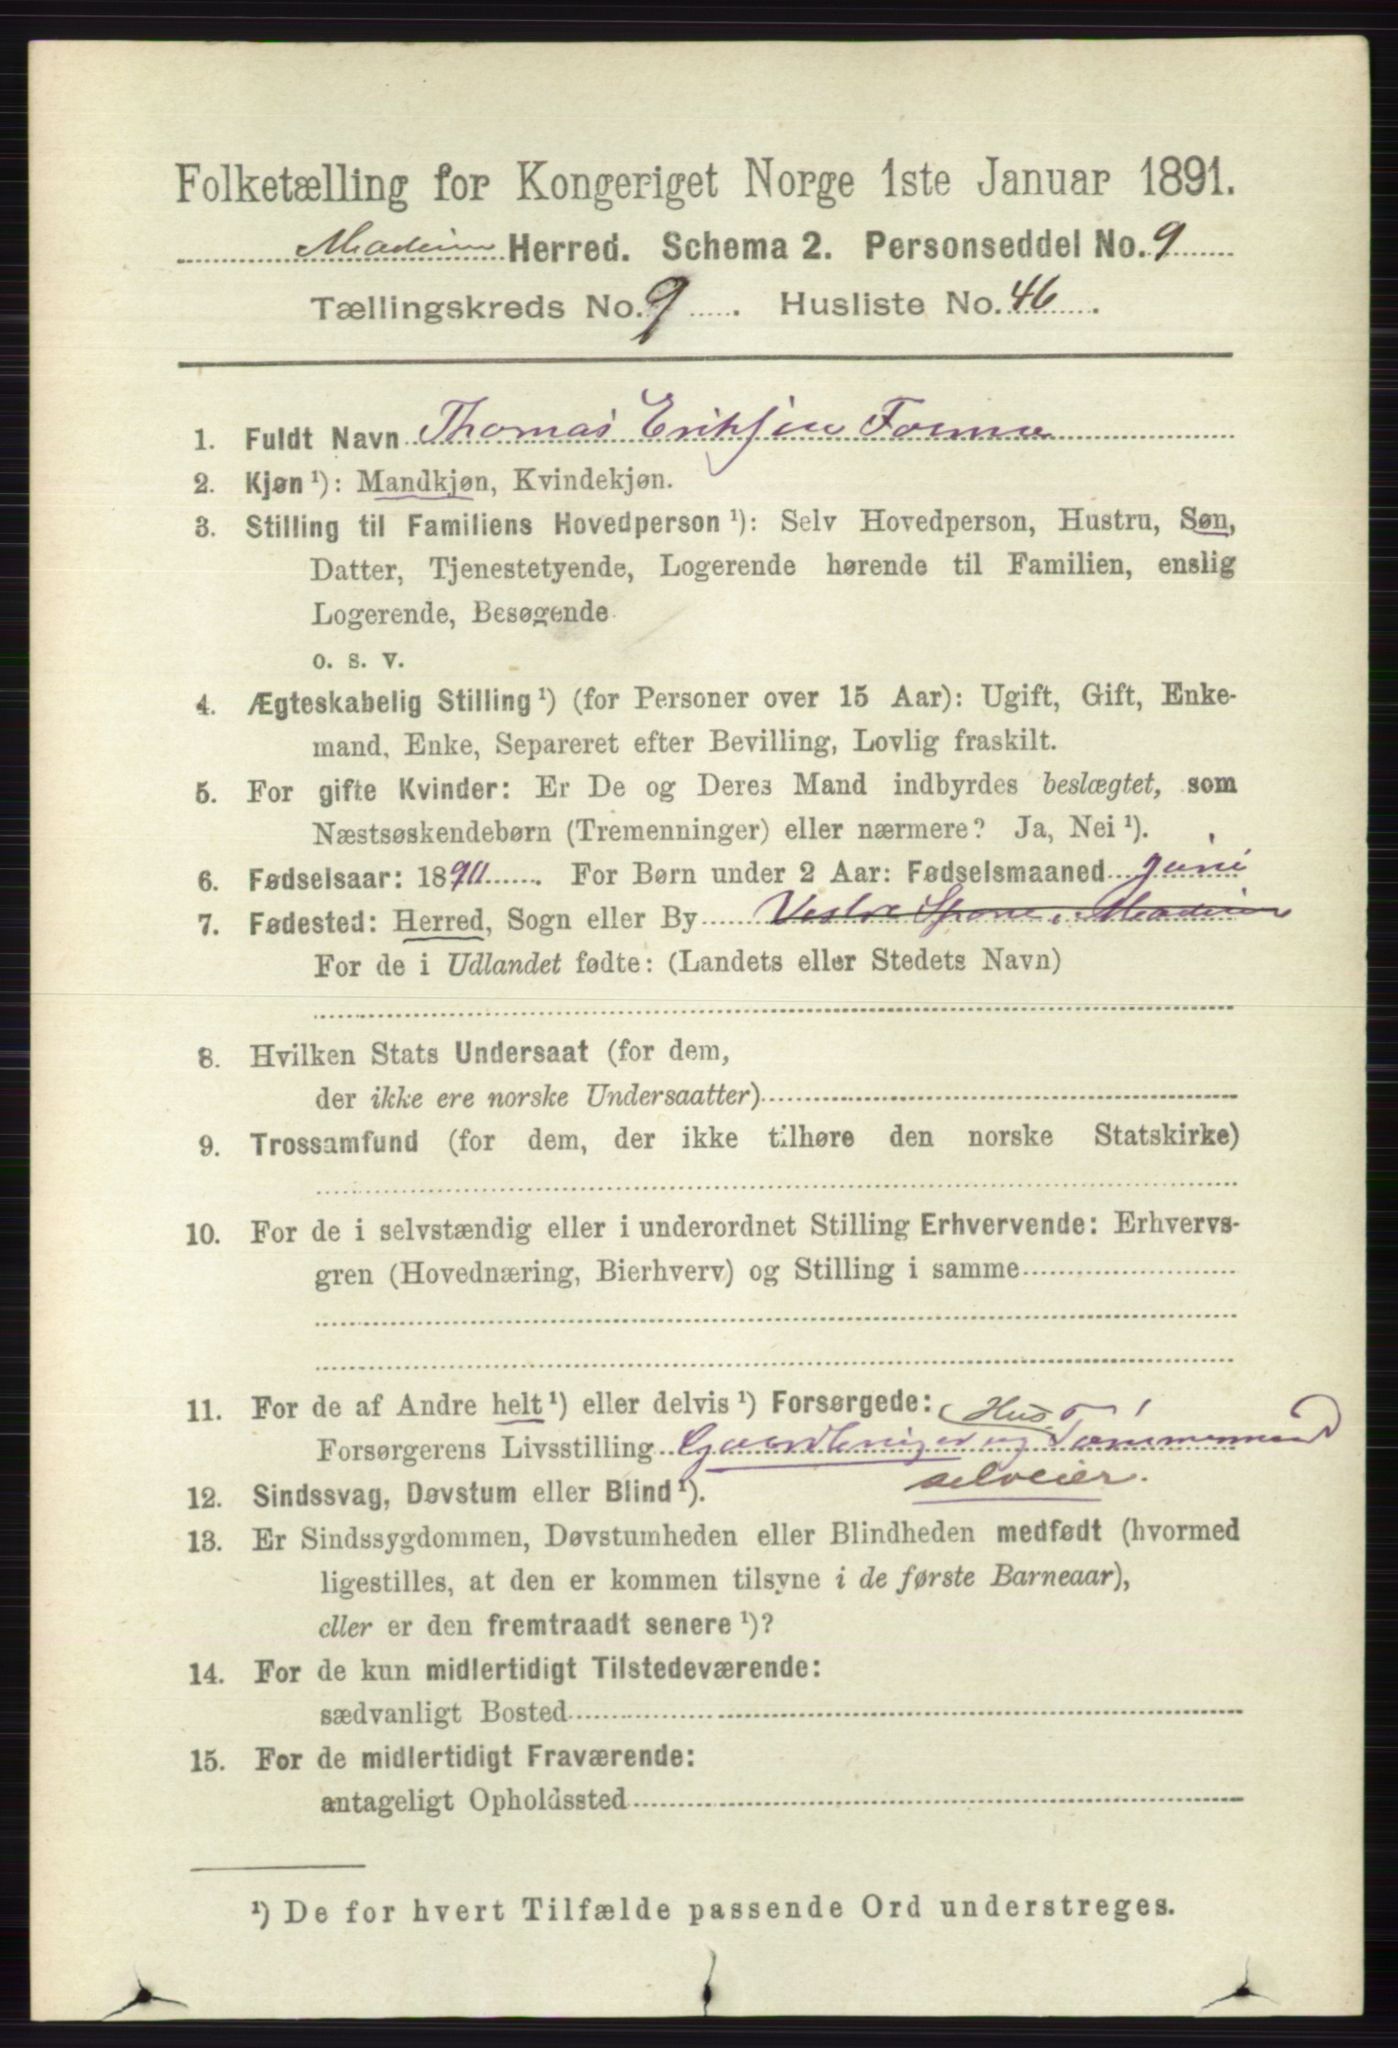 Folketælling for Kongeriget Norge 1ste Januar 1891.
Modum Herred. Schema 2. Personseddel No. 9
Tællingskreds No. 9. Husliste No. 46.
1. Fuldt Navn Thomas Eriksen
2. Kjøn ¹): Mandkjøn, Kvindekjøn.
3. Stilling til Familiens Hovedperson ¹): Selv Hovedperson, Hustru, Søn,
Datter, Tjenestetyende, Logerende hørende til Familien, enslig
Logerende, Besøgende
o. s. v.
4. Ægteskabelig Stilling ¹) (for Personer over 15 Aar): Ugift, Gift, Enke-
mand, Enke, Separeret efter Bevilling, Lovlig fraskilt.
5. For gifte Kvinder: Er De og Deres Mand indbyrdes beslægtet, som
Næstsøskendebørn (Tremenninger) eller nærmere? Ja, Nei ¹).
6. Fødselsaar: 1890. For Børn under 2 Aar: Fødselsmaaned Juni
7. Fødested: Herred, Sogn eller By Vestre Spone, Modum
For de i Udlandet fødte: (Landets eller Stedets Navn)
8. Hvilken Stats Undersaat (for dem,
der ikke ere norske Undersaatter)
9. Trossamfund (for dem, der ikke tilhøre den norske Statskirke)
10. For de i selvstændig eller i underordnet Stilling Erhvervende: Erhvervs-
gren (Hovednæring, Bierhverv) og Stilling i samme
11. For de af Andre helt ¹) eller delvis ¹) Forsørgede: Hus
Forsørgerens Livsstilling Gaardbruger og Tømmermand
selveier.
12. Sindssvag, Døvstum eller Blind ¹).
13. Er Sindssygdommen, Døvstumheden eller Blindheden medfødt (hvormed
ligestilles, at den er kommen tilsyne i de første Barneaar),
eller er den fremtraadt senere ¹)?
14. For de kun midlertidigt Tilstedeværende:
sædvanligt Bosted
15. For de midlertidigt Fraværende:
antageligt Opholdssted
¹) De for hvert Tilfælde passende Ord understreges.